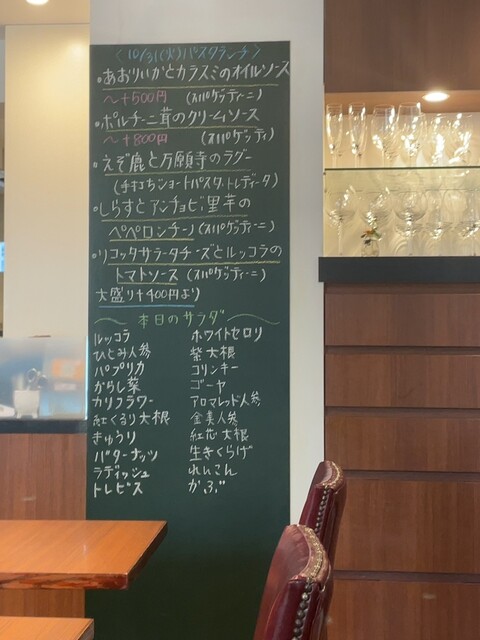 〈10/31(火)パスタランチ〉
・あおりいかとカラスミのオイルソース
〜+500円 (スパゲッティーニ)
・ポルチーニ茸のクリームソース
〜+800円 (スパゲッティ)
・えぞ鹿と万願寺のラグー
(手打ちショートパスタ・トレディータ)
・しらすとアンチョビ、里芋の
ペペロンチーノ(スパゲッティーニ)
・リコッタサラータチーズとルッコラの
トマトソース (スパゲッティーニ)
大盛り+400円より
本日のサラダ
ルッコラ
ひとみ人参
パプリカ
からし菜
カリフラワー
紅くるり大根
きゅうり
バターナッツ
ラディッシュ
トレビス
ホワイトセロリ
紫大根
コリンキー
ゴーヤ
アロマレッド人参
金美人参
紅芯大根
生きくらげ
れんこん
かぶ